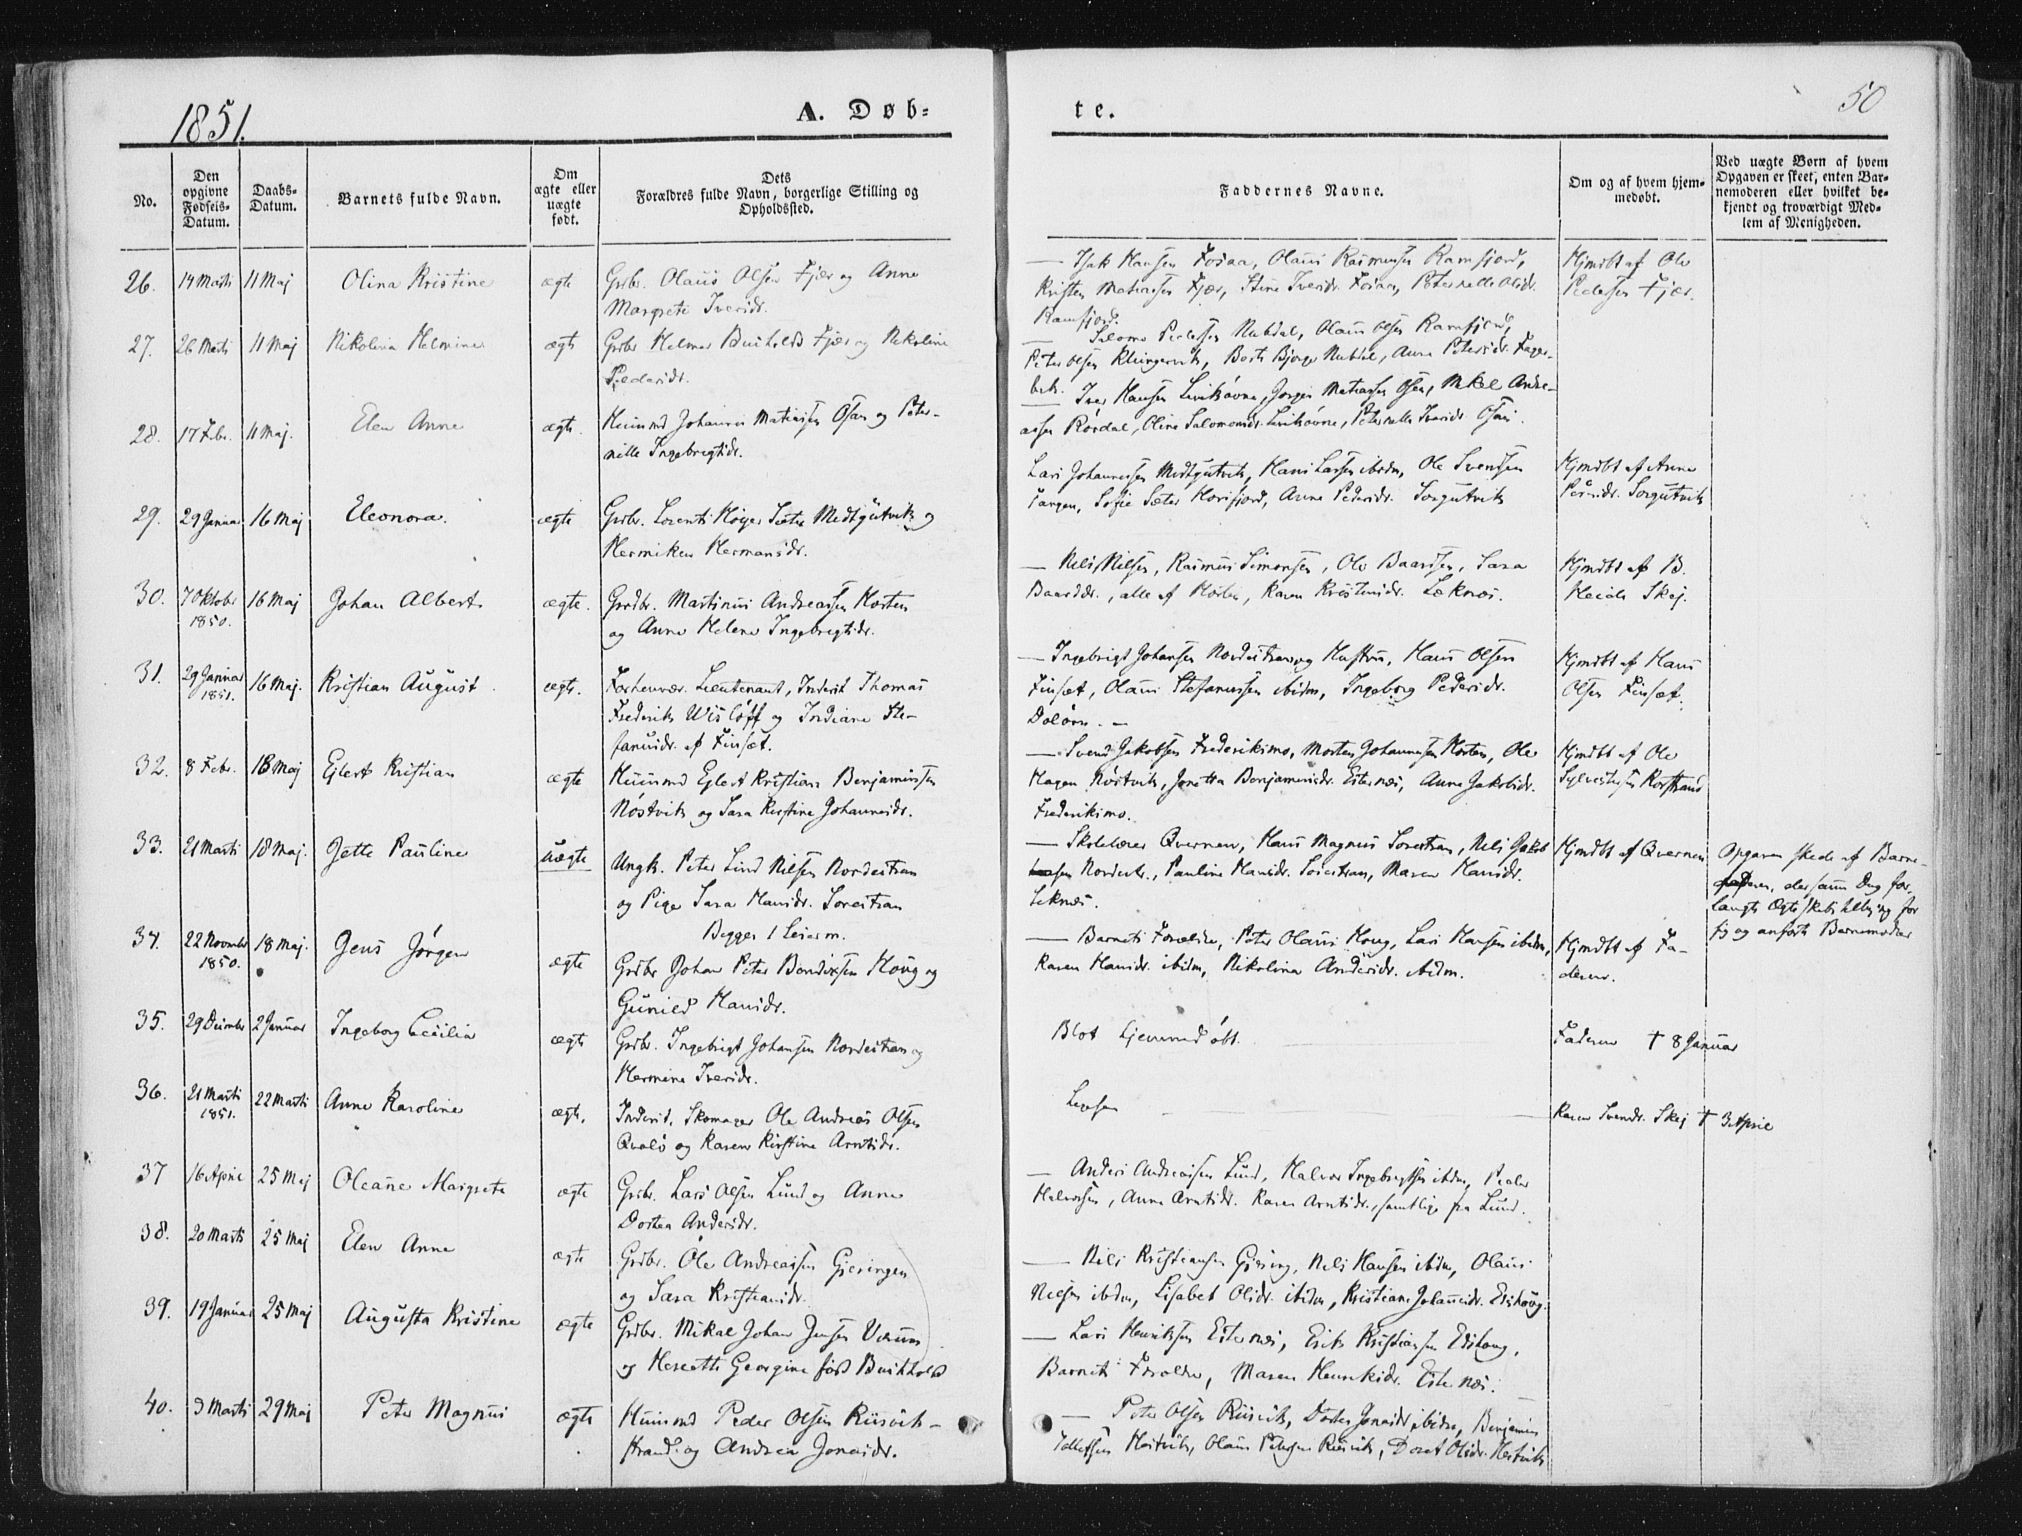 1851.
A. Døb=
te.
50
No.
Den opgivne Fødsels-Datum.
Daabs-Datum.
Barnets fulde Navn.
Om ægte eller uægte født.
Dets Forældres fulde Navn, borgerlige Stilling og Opholdssted.
Faddernes Navne.
Om og af hvem hjemmedøbt.
Ved uægte Børn af hvem Opgaven er skeet, enten Barnemoderen eller hvilket bekjendt og troværdigt Medlem af Menigheden.
26. 14 Marts 11 Maj Olina Kristine ægte Grdbr. Olaus Olsen Fjær og Anne
Margrete Iversdr.
— Isak Hansen Fosaa, Olaus Rasmussen Ramfjord,
Kristen Matiassen Fjær, Stine Iversdr. Fosaa, Peternelle Olsdr.
Ramfjord.
Hjmdbt af Ole
Pedersen Fjær.
27. 26 Marts 11 Maj Nikolina Helmine ægte Grdbr Helmer Buchholdt Fjær og Nikoline
Pedersdr.
— Salomo Pedersen Nubdal, Olaus Olsen Ramfjord,
Peter Olsen Klungervik, Berte Bjørge Nubdal, Anne Petersdr. Fager-
bek.
28. 17 Febr. 11 Maj. Elen Anne ægte. Huusmd Johannes Matiassen Osan og Peter-
nille Ingebrigtsdr.
— Iver Hansen, Jørgen Matiassen Osen, Mikal Andre-
assen Rørdal, Oline Salomonsdr., Peternelle Iversdr. Osan.
29. 29 Januar 16 Maj Eleonora. ægte Grdbr. Lorents Høyer Sæter Medtgutvik og
Hermiken Hermansdr.
Lars Johannessen Medtgutvik, Hans Larsen ibidm, Ole Svendsen
Tangen, Sofie Sæter Horsfjord, Anne Pedersdr. Sørgutvik
Hjmdbt af Anne
Persdr. Sørgutvik
30. 7 Oktober 1850. 16 Maj Johan Albert ægte. Grdbr. Martinus Andreassen Horten
og Anne Helene Ingebrigtsdr.
— Nils Nilsen, Rasmus Simonsen, Ole Baardsen, Sara
Baardsdr., alle af Horten, Karen Kristensdr. Leknæs.
Hjmdbt af B.
Heide Skej.
31. 29 Januar 1851. 16 Maj. Kristian August. ægte. Forhenvær. Lieutenant, Inderst Thomas
Frederik Wisløff og Indiane Ste-
fanusdr. af Finsæt.
— Ingebrigt Johansen Nordestran og Hustru, Hans Olsen
Finsæt, Olaus Stefanussen ibidm, Ingeborg Pedersdr.
Doløen. —
Hjmdbt af Hans
Olsen Finsæt.
32. 8 Febr. 18 Maj Ejlert Kristian ægte Huusmd Ejlert Kristian Benjaminsen
Nøstvik og Sara Kirstine Johannesdr.
— Svend Jakobsen Frederiksmo, Morten Johannessen Horten, Ole
Hagen Nøstvik, Jonetta Benjaminsdr. Esternæs, Anne Jakobsdr.
Frederiksmo.
Hjmdbt af Ole
Sylvestersen
33. 21 Marts 18 Maj. Jette Pauline uægte Ungk. Peter Lind Nilsen Nordestran
og Pige Sara Hansdr. Sørestran
Begges 1 Leierm.
— Skolelærer Qvernen, Hans Magnus Sørestran, Nils Jakob
Nordestr., Pauline Hansdr. Sørestran, Maren Hansdr.
Leknæs.
Hjmdbt af Qvernen
Opgaven skede af Barne-
faderen, der samme Dag for-
langte Ægteskabs Lysing for
sig og anførte Barnemoder
34. 22 Novmbr 1850. 18 Maj. Jens Jørgen ægte Grdbr Johan Peter Bendixsen Houg og
Gunild Hansdr.
— Barnets Forældre, Peter Olaus Houg, Lars Hansen ibidm,
Karen Hansdr. ibidm, Nikolina Andersdr. ibidm.
Hjmdbt af Fa-
deren.
35. 29 Decmbr 2 Januar Ingeborg Cecilia ægte Grdbr. Ingebrigt Johansen Nordestran og
Hermine Iversdr.
Blot hjemmedøbt.
Faderen † 8 Januar
36. 21 Marts 1851. 22 Marts Anne Karoline ægte. Inderst, Skomager Ole Andreas Olsen
Qvalø og Karen Kirstine Arntsdr.
Karen Svendr. Skej † 3 April
37 16 April 25 Maj Oleane Margrete ægte Grdbr. Lars Olsen Lund og Anne
Dortea Andersdr.
— Anders Andreassen Lund, Halvor Ingebrigtsen ibidm, Peder
Halvorsen, Anne Arntsdr. Karen Arntsdr., samtlige fra Lund.
38. 20 Marts 25 Maj Elen Anne ægte Grdbr. Ole Andreassen Gjeringen
og Sara Kristiansdr.
— Nils Kristiansen Gjering, Nils Hansen ibidm, Olaus
Nilsen ibidm, Lisabet Olsdr. ibidm, Kristiane Johannesdr. Edshoug.
39. 19 Januar 25 Maj Augusta Kristine ægte Grdbr. Mikal Johan Jensen Værum
og Georgine født Buchholdt
— Lars Henriksen Esternæs, Erik Kristiansen Edshoug,
Barnets Forældre, Maren Henriksdr. Esternæs.
40. 3 Marts 29 Maj Peter Magnus ægte Huusmd Peder Olsen Riisvik-
strand og Andrea Jonasdr.
— Peter Olsen Riisvik, Dortea Jonasdr ibidm, Benjamin
Tollefsen Hestvik, Olaus Petersen Riisvik, Doret Olsdr. Hestvik